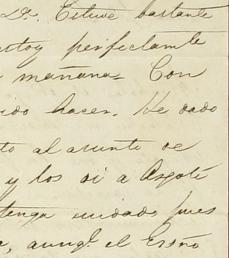 Dr. Estuve bastante
estoy perfectamte
mañana. Con
hacer. He dado
to al asunto de
y los di a Azpoté
tenga cuidado pues
, aunqe. el Ersño